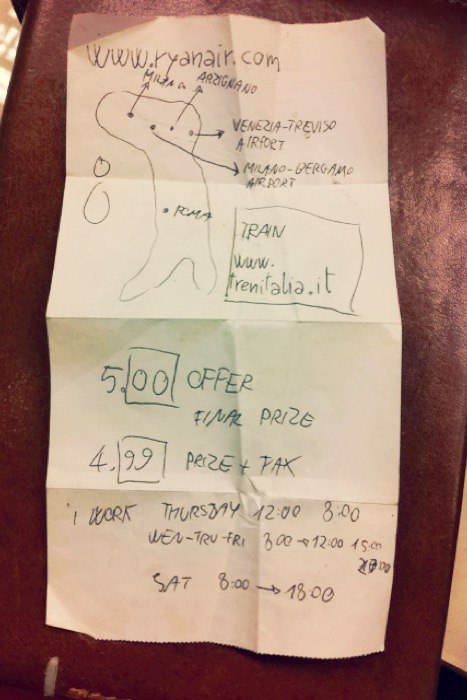 www.ryanair.com
MILANO ARZIGNANO
VENEZIA-TREVISO
AIRPORT
MILANO-BERGAMO
AIRPORT
ROMA
TRAIN
www.
trenitalia.it
5.00 OFFER
FINAL PRIZE
4.99 PRIZE + TAX
I WORK THURSDAY 12:00 8:00
WEN-THU-FRI 8:00 → 12:00 15:00
SAT 8:00 → 18:00